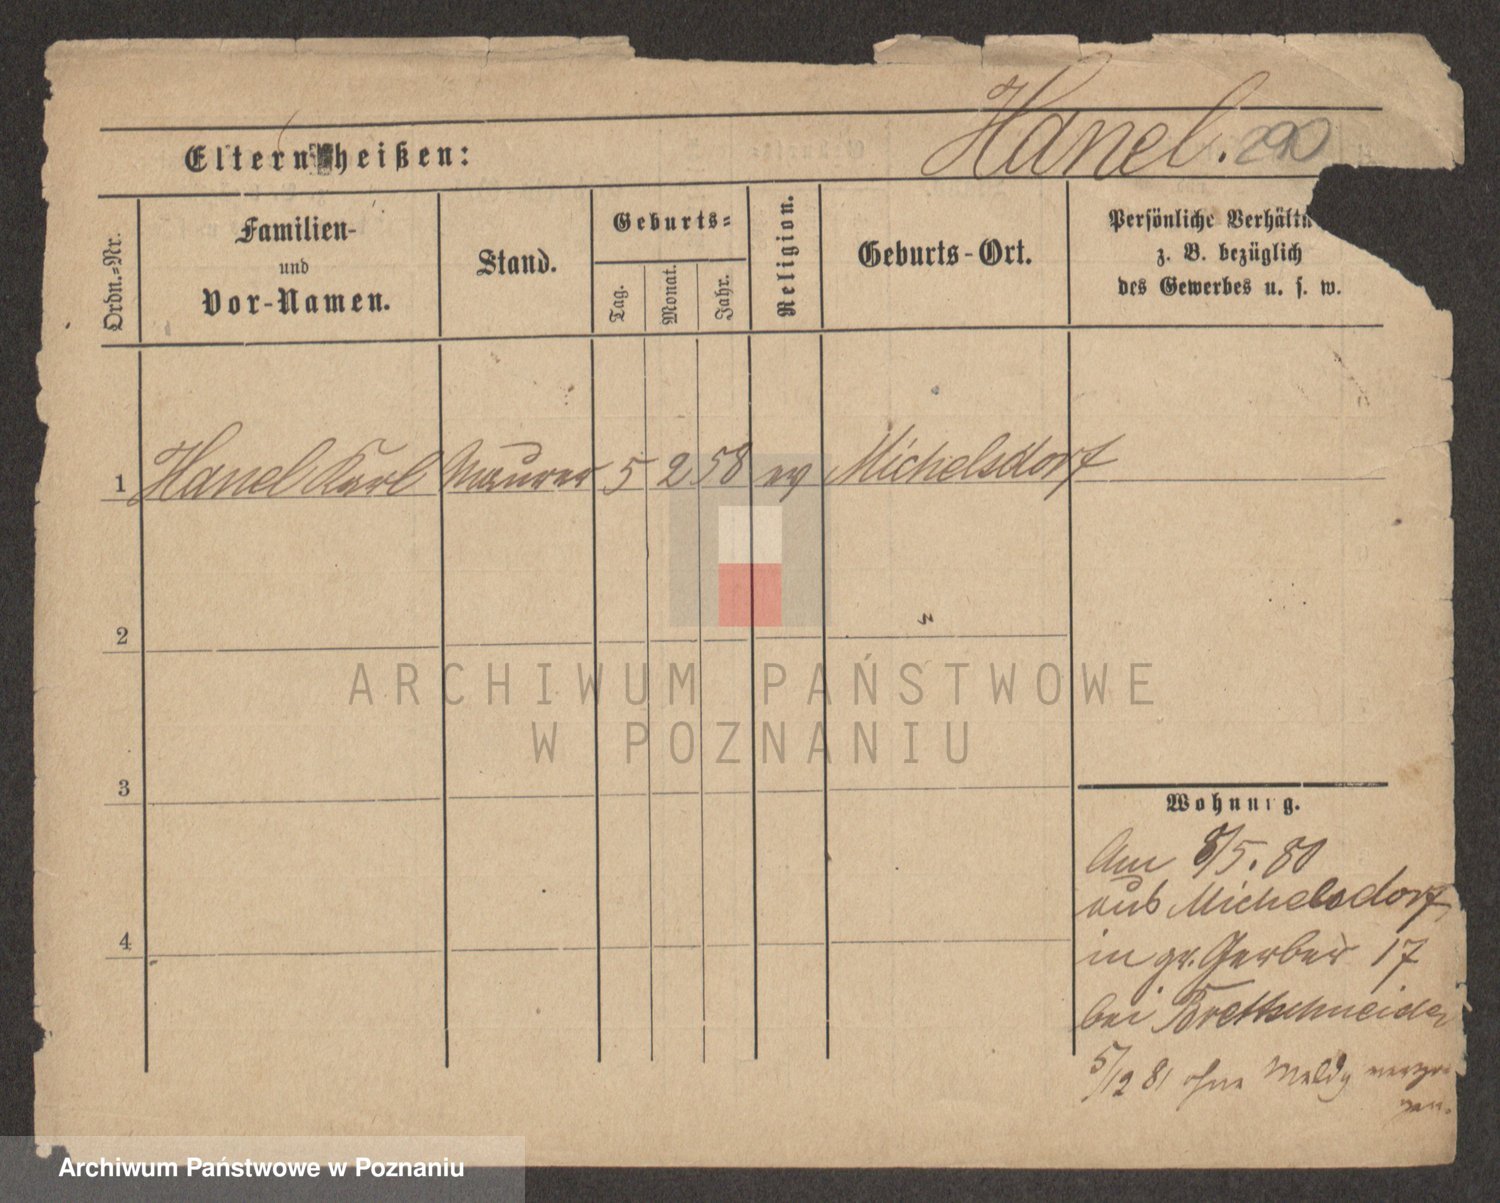 Hanel. 290
Eltern heißen:
Ordn.-Nr.
Familien-
und
Vor-Namen.
Stand.
Geburts-
Tag.
Monat.
Jahr.
Religion.
Geburts-Ort.
Persönliche Verhältn
z. B. bezüglich
des Gewerbes u. s. w.
1 Hanel Karl Maurer 5 2 58 ev Michelsdorf
2
3
4
Wohnung.
Am 8/5. 80
aus Michelsdorf
in gr. Gerber 17
bei Brettschneider
5/12 81 ohne Meldg verzo-
gen.
ARCHIWUM PAŃSTWOWE
W POZNANIU
Archiwum Państwowe w Poznaniu